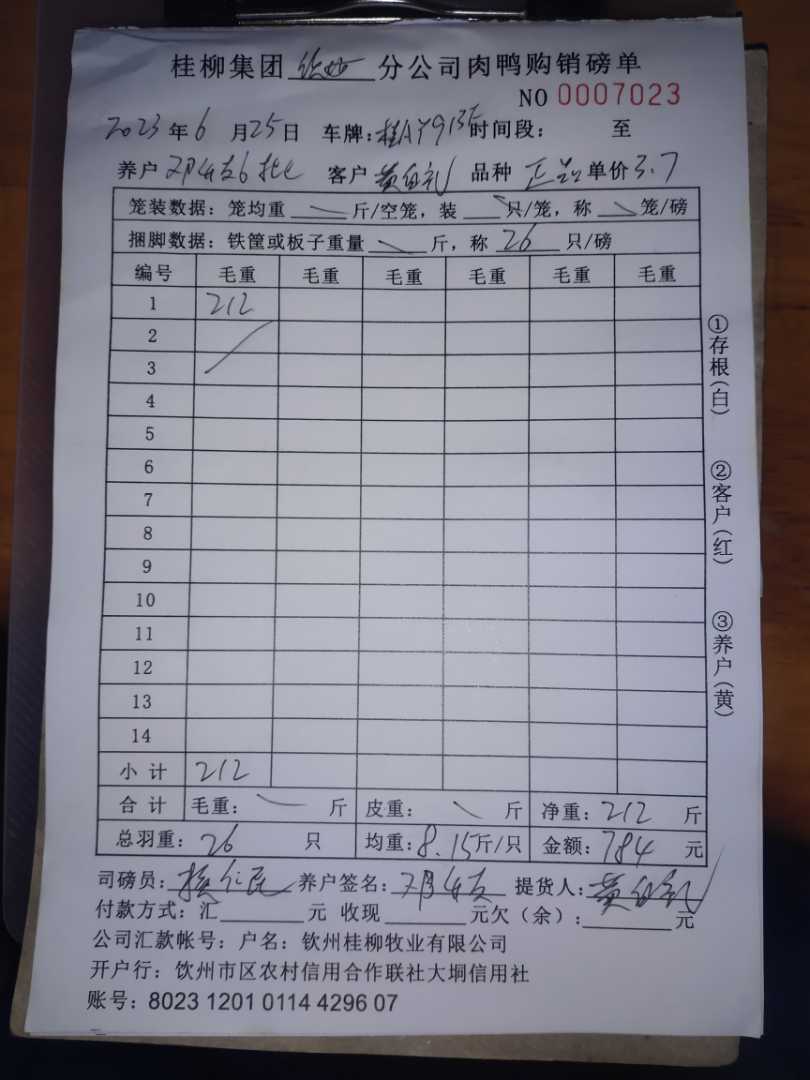 桂柳集团 钦州 分公司肉鸭购销磅单
NO 0007023
2023年6月25日 车牌:桂AY913E时间段: 至
养户 邓年友6批 客户 黄白礼 品种 正品 单价3.7
笼装数据:笼均重 斤/空笼,装 只/笼,称 笼/磅
捆脚数据:铁筐或板子重量 斤,称 26 只/磅
编号 毛重 毛重 毛重 毛重 毛重 毛重
1 212
2
3
4
5
6
7
8
9
10
11
12
13
14
小计 212
合计 毛重: 斤 皮重: 斤 净重:212 斤
总羽重:26 只 均重:8.15斤/只 金额:784 元
司磅员: 仁民 养户签名: 提货人:
付款方式:汇 元 收现 元欠(余): 元
公司汇款帐号:户名:钦州桂柳牧业有限公司
开户行:饮州市区农村信用合作联社大垌信用社
账号:8023 1201 0114 4296 07
①存根(白)
②客户(红)
③养户(黄)